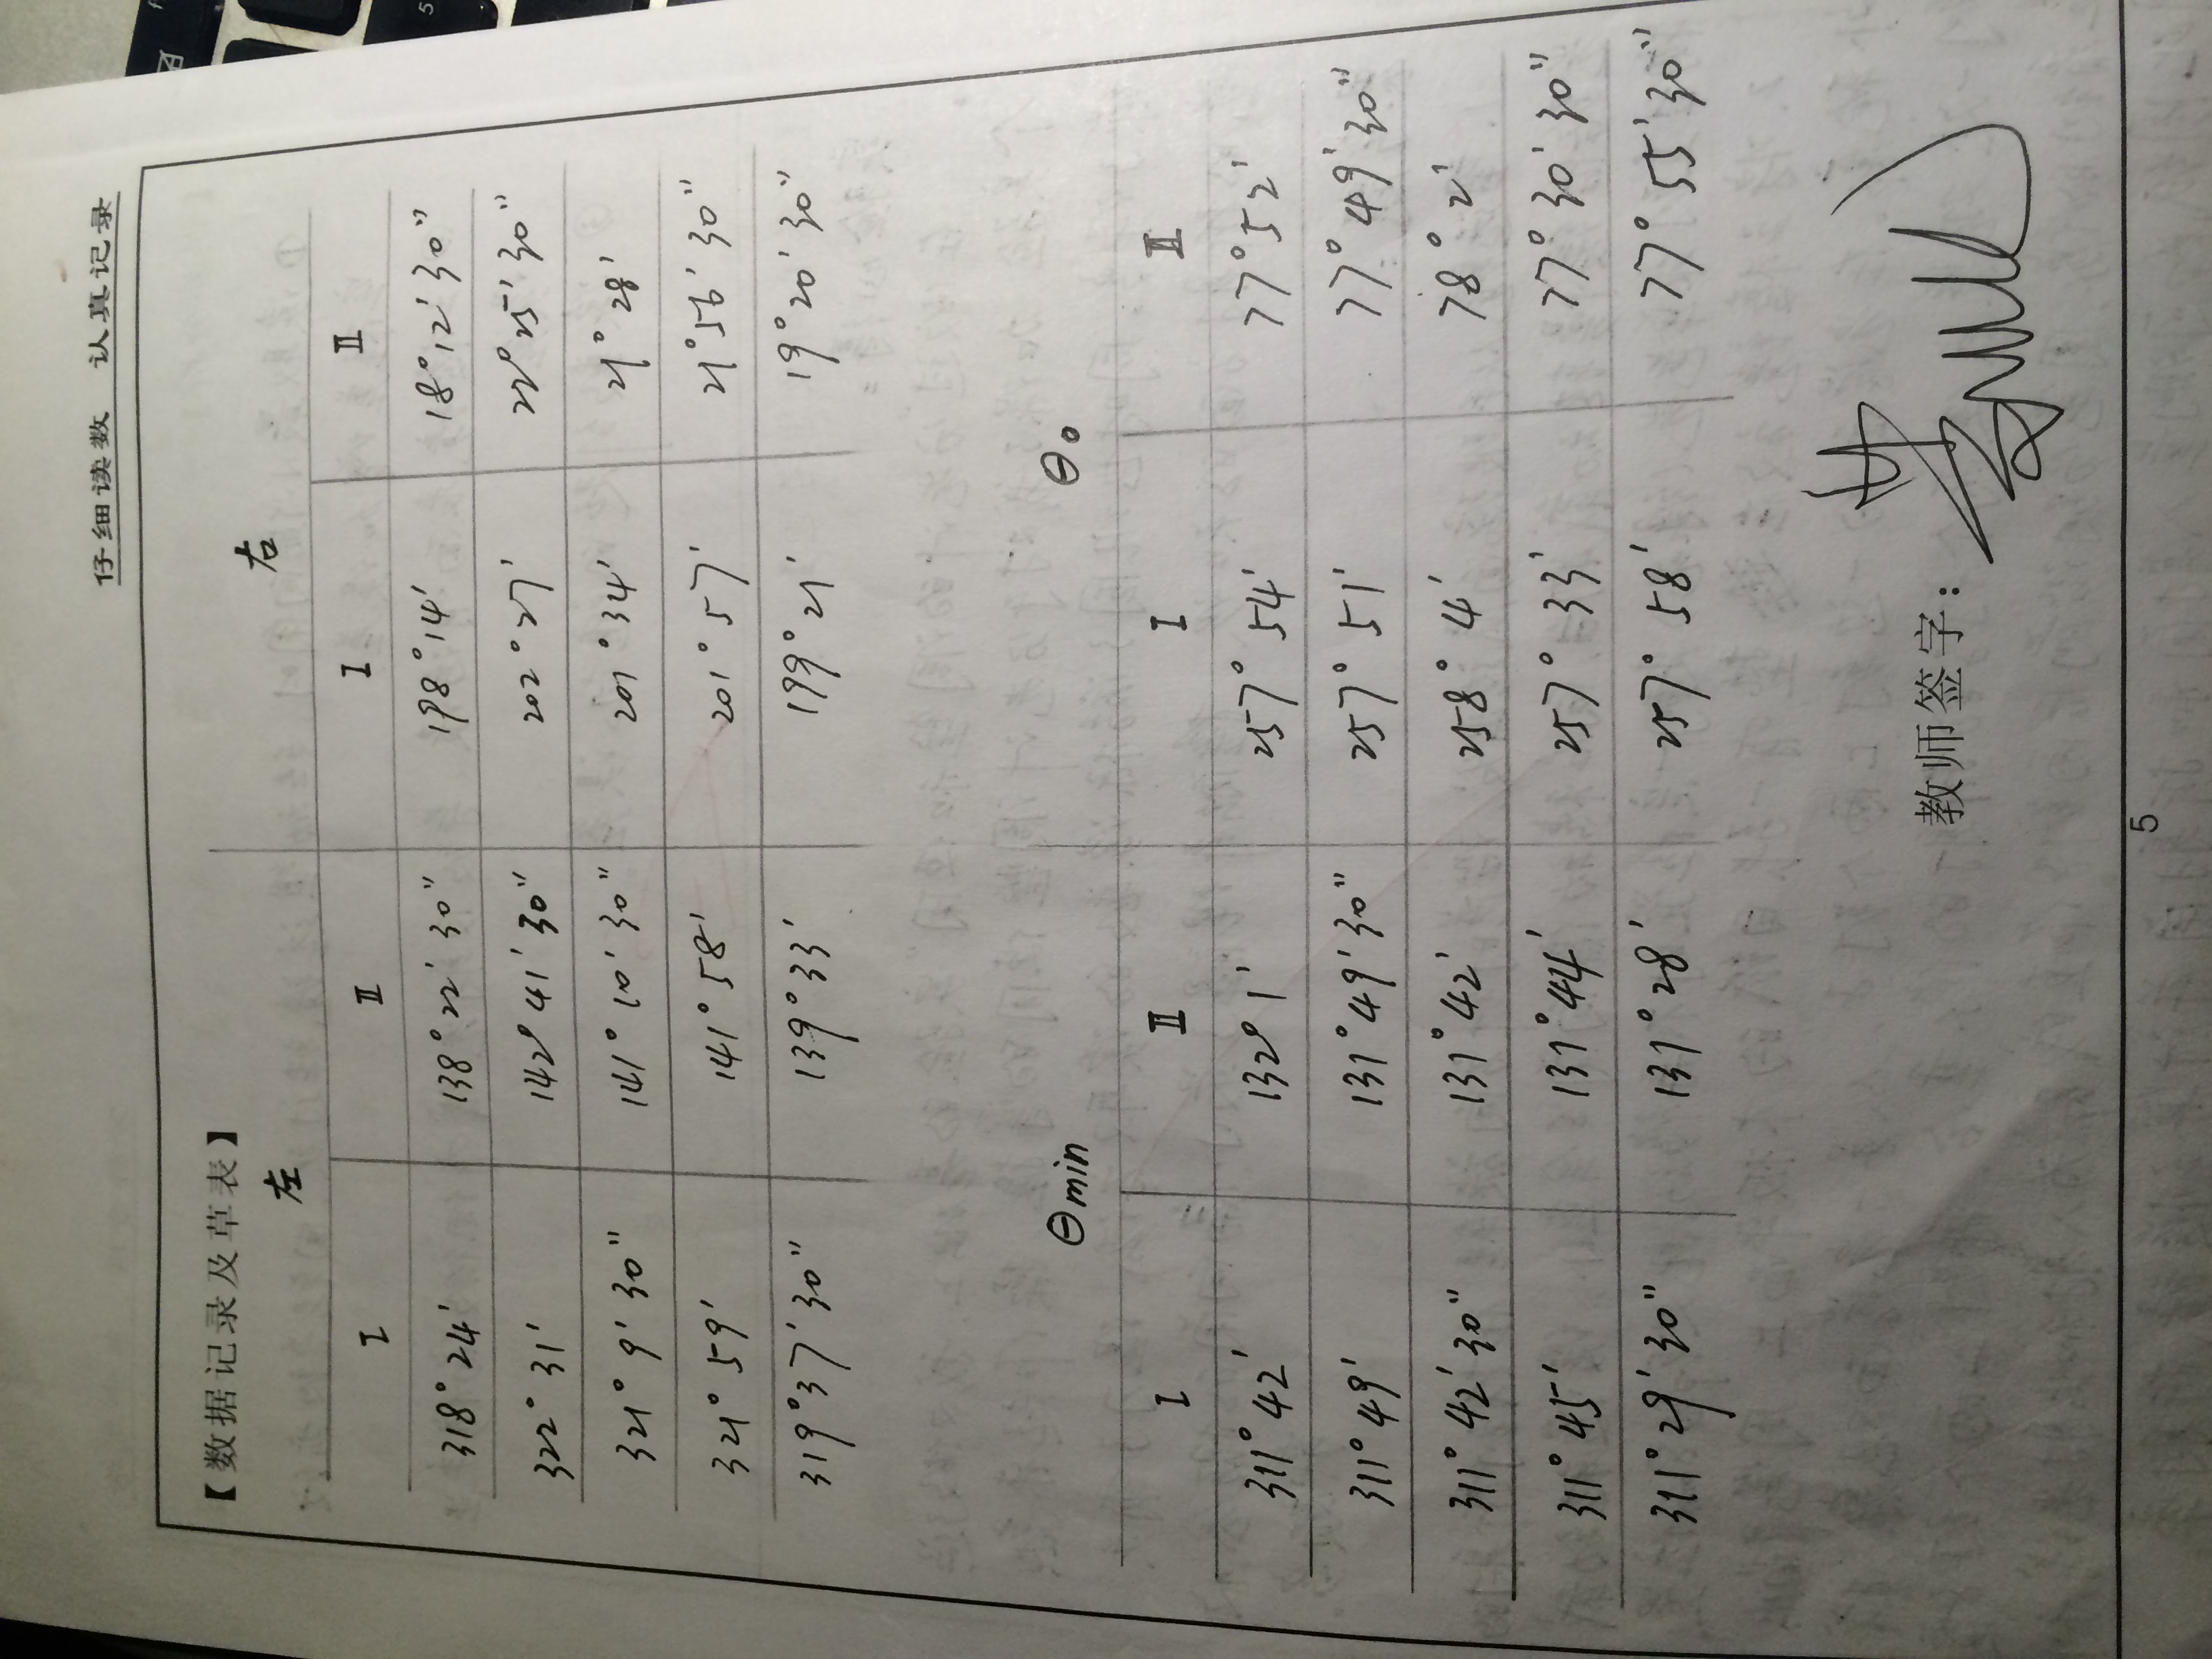 仔细读数 认真记录
【数据记录及草表】
左 右
I II I II
318°24' 138°22'30" 198°14' 18°12'30"
322°31' 142°41'30" 202°27' 22°25'30"
321°9'30" 141°10'30" 201°34' 21°28'
321°59' 141°58' 201°57' 21°56'30"
319°37'30" 139°33' 199°21' 19°20'30"
θmin θ0
I II I II
311°42' 132°1' 257°54' 77°52'
311°49' 131°49'30" 257°51' 77°49'30"
311°42'30" 131°42' 258°4' 78°2'
311°45' 131°44' 257°33' 77°30'30"
311°29'30" 131°28' 257°58' 77°55'30"
教师签字：
5